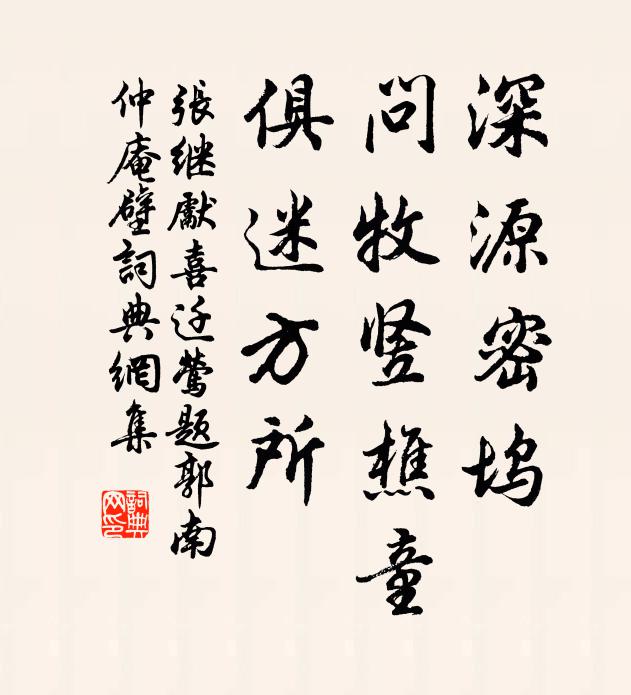 深源密坞
问牧竖樵童
俱迷方所
張继獻喜迁鶯题郭南
仲庵壁詞典網集
詞典网印